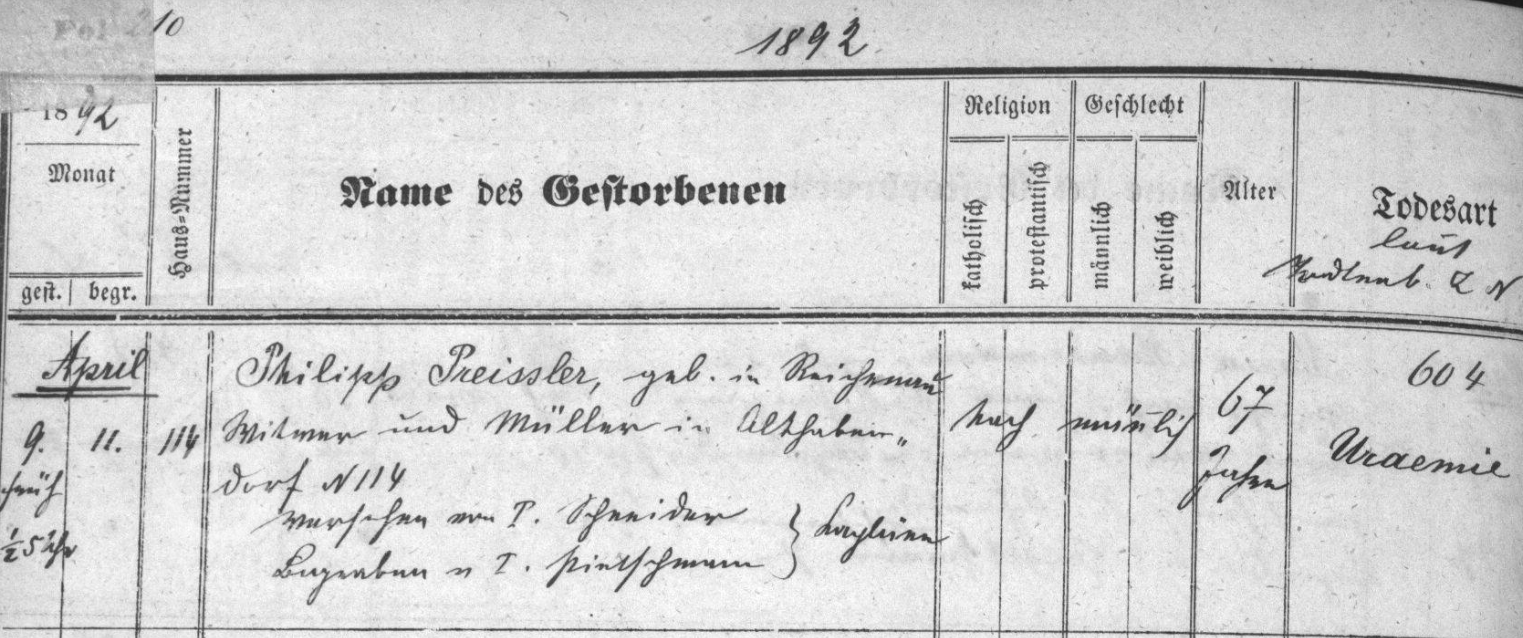 Fol 210
1892
1892
Monat
gest. begr.
Haus-Nummer
Name des Gestorbenen
Religion
katholisch
protestantisch
Geschlecht
männlich
weiblich
Alter
Todesart
laut
Z N
April
9. 11. 114
früh
½ 5 Uhr
Philipp Preissler, geb. in Reichenau
Witwer und Müller in Althaben„
dorf N 114
versehen von P. Schneider
Begraben v P. Pietschmann } Kapläne
kath männlich
67
Jahre
604
Uraemie